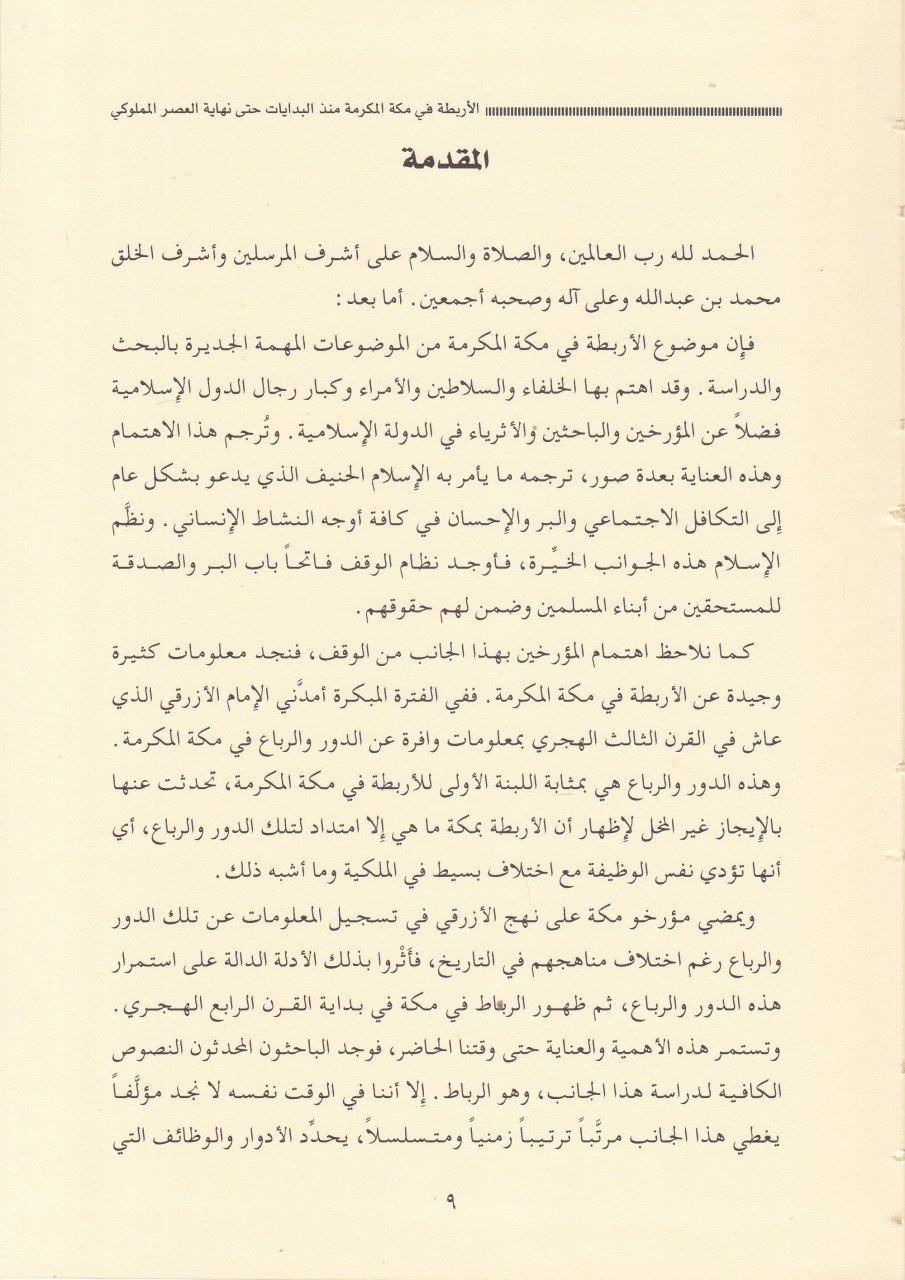 الأربطة في مكة المكرمة منذ البدايات حتى نهاية العصر المملوكي
المقدمة
الحمد لله رب العالمين، والصلاة والسلام على أشرف المرسلين وأشرف الخلق
محمد بن عبدالله وعلى آله وصحبه أجمعين. أما بعد:
فإن موضوع الأربطة في مكة المكرمة من الموضوعات المهمة الجديرة بالبحث
والدراسة. وقد اهتم بها الخلفاء والسلاطين والأمراء وكبار رجال الدول الإسلامية
فضلاً عن المؤرخين والباحثين والأثرياء في الدولة الإسلامية. وتُرجم هذا الاهتمام
وهذه العناية بعدة صور، ترجمه ما يأمر به الإسلام الحنيف الذي يدعو بشكل عام
إلى التكافل الاجتماعي والبر والإحسان في كافة أوجه النشاط الإنساني. ونظَّم
الإسلام هذه الجوانب الخيِّرة، فأوجد نظام الوقف فاتحاً باب البر والصدقة
للمستحقين من أبناء المسلمين وضمن لهم حقوقهم.
كما نلاحظ اهتمام المؤرخين بهذا الجانب من الوقف، فنجد معلومات كثيرة
وجيدة عن الأربطة في مكة المكرمة. ففي الفترة المبكرة أمدَّني الإمام الأزرقي الذي
عاش في القرن الثالث الهجري بمعلومات وافرة عن الدور والرباع في مكة المكرمة.
وهذه الدور والرباع هي بمثابة اللبنة الأولى للأربطة في مكة المكرمة، تحدثت عنها
بالإيجاز غير المخل لإظهار أن الأربطة بمكة ما هي إلا امتداد لتلك الدور والرباع، أي
أنها تؤدي نفس الوظيفة مع اختلاف بسيط في الملكية وما أشبه ذلك.
ويمضي مؤرخو مكة على نهج الأزرقي في تسجيل المعلومات عن تلك الدور
والرباع رغم اختلاف مناهجهم في التاريخ، فأَثْروا بذلك الأدلة الدالة على استمرار
هذه الدور والرباع، ثم ظهور الرباط في مكة في بداية القرن الرابع الهجري.
وتستمر هذه الأهمية والعناية حتى وقتنا الحاضر، فوجد الباحثون المحدثون النصوص
الكافية لدراسة هذا الجانب، وهو الرباط. إلا أننا في الوقت نفسه لا نجد مؤلَّفاً
يغطي هذا الجانب مرتَّباً ترتيباً زمنياً ومتسلسلاً، يحدِّد الأدوار والوظائف التي
٩